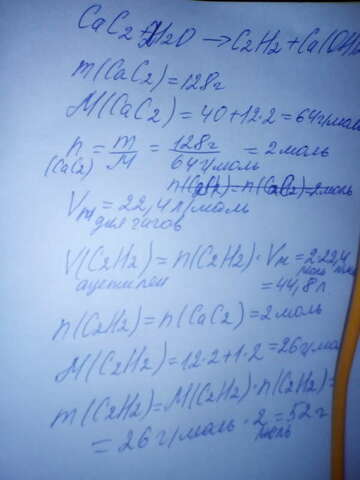 CaC2+2H2O → C2H2 + Ca(OH)2
m(CaC2) = 128г
M(CaC2) = 40+12·2 = 64г/моль
n(CaC2) = m/M = 128г/64г/моль = 2моль
n(C2H2) = n(CaC2) = 2моль
Vm = 22,4 л/моль
для газов
V(C2H2) = n(C2H2)·Vm = 2·22,4
ацетилен = 44,8л
n(C2H2) = n(CaC2) = 2моль
M(C2H2) = 12·2+1·2 = 26г/мол
m(C2H2) = M(C2H2)·n(C2H2) =
= 26г/моль·2моль = 52г